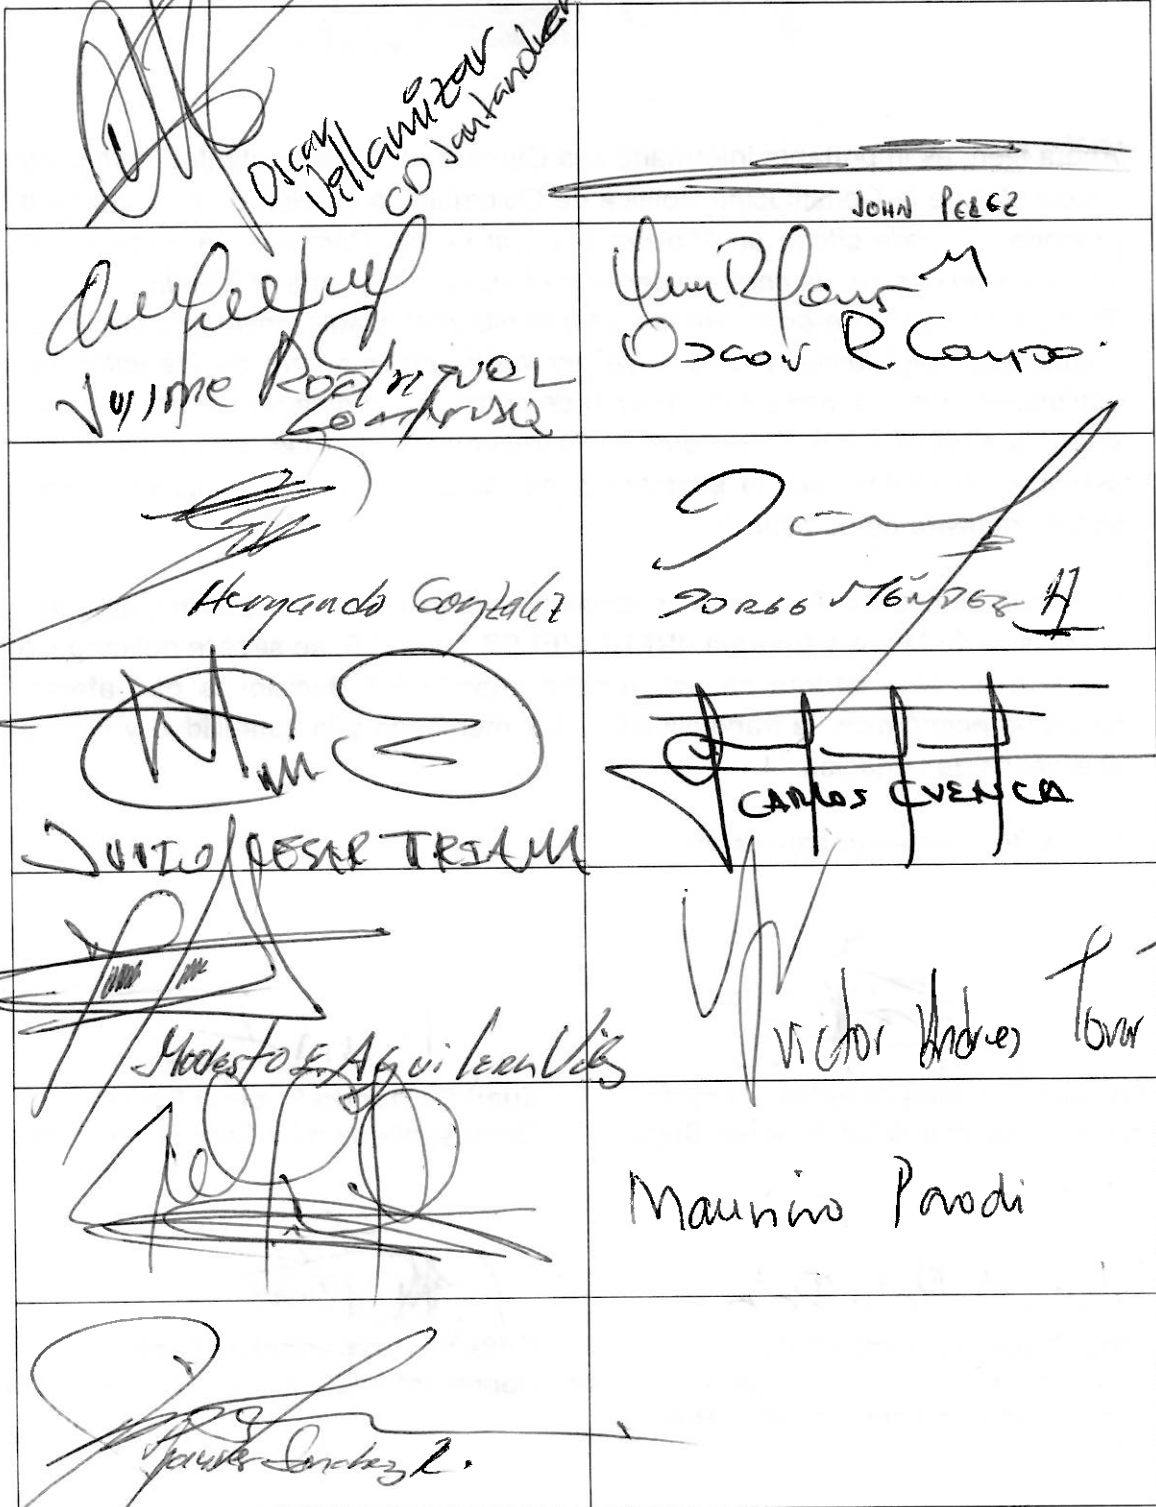 Oscar
Villamizar
CD Santander
JOHN PEREZ
Jaime Rodriguez
Contreras
Oscar R. Campo.
Hernando González
JORGE MÉNDEZ H
JULIO CESAR TRIANA
CARLOS CUENCA
Modesto E. Aguilera Vides
Victor Andres Tovar
Mauricio Parodi
Javier Sanchez R.